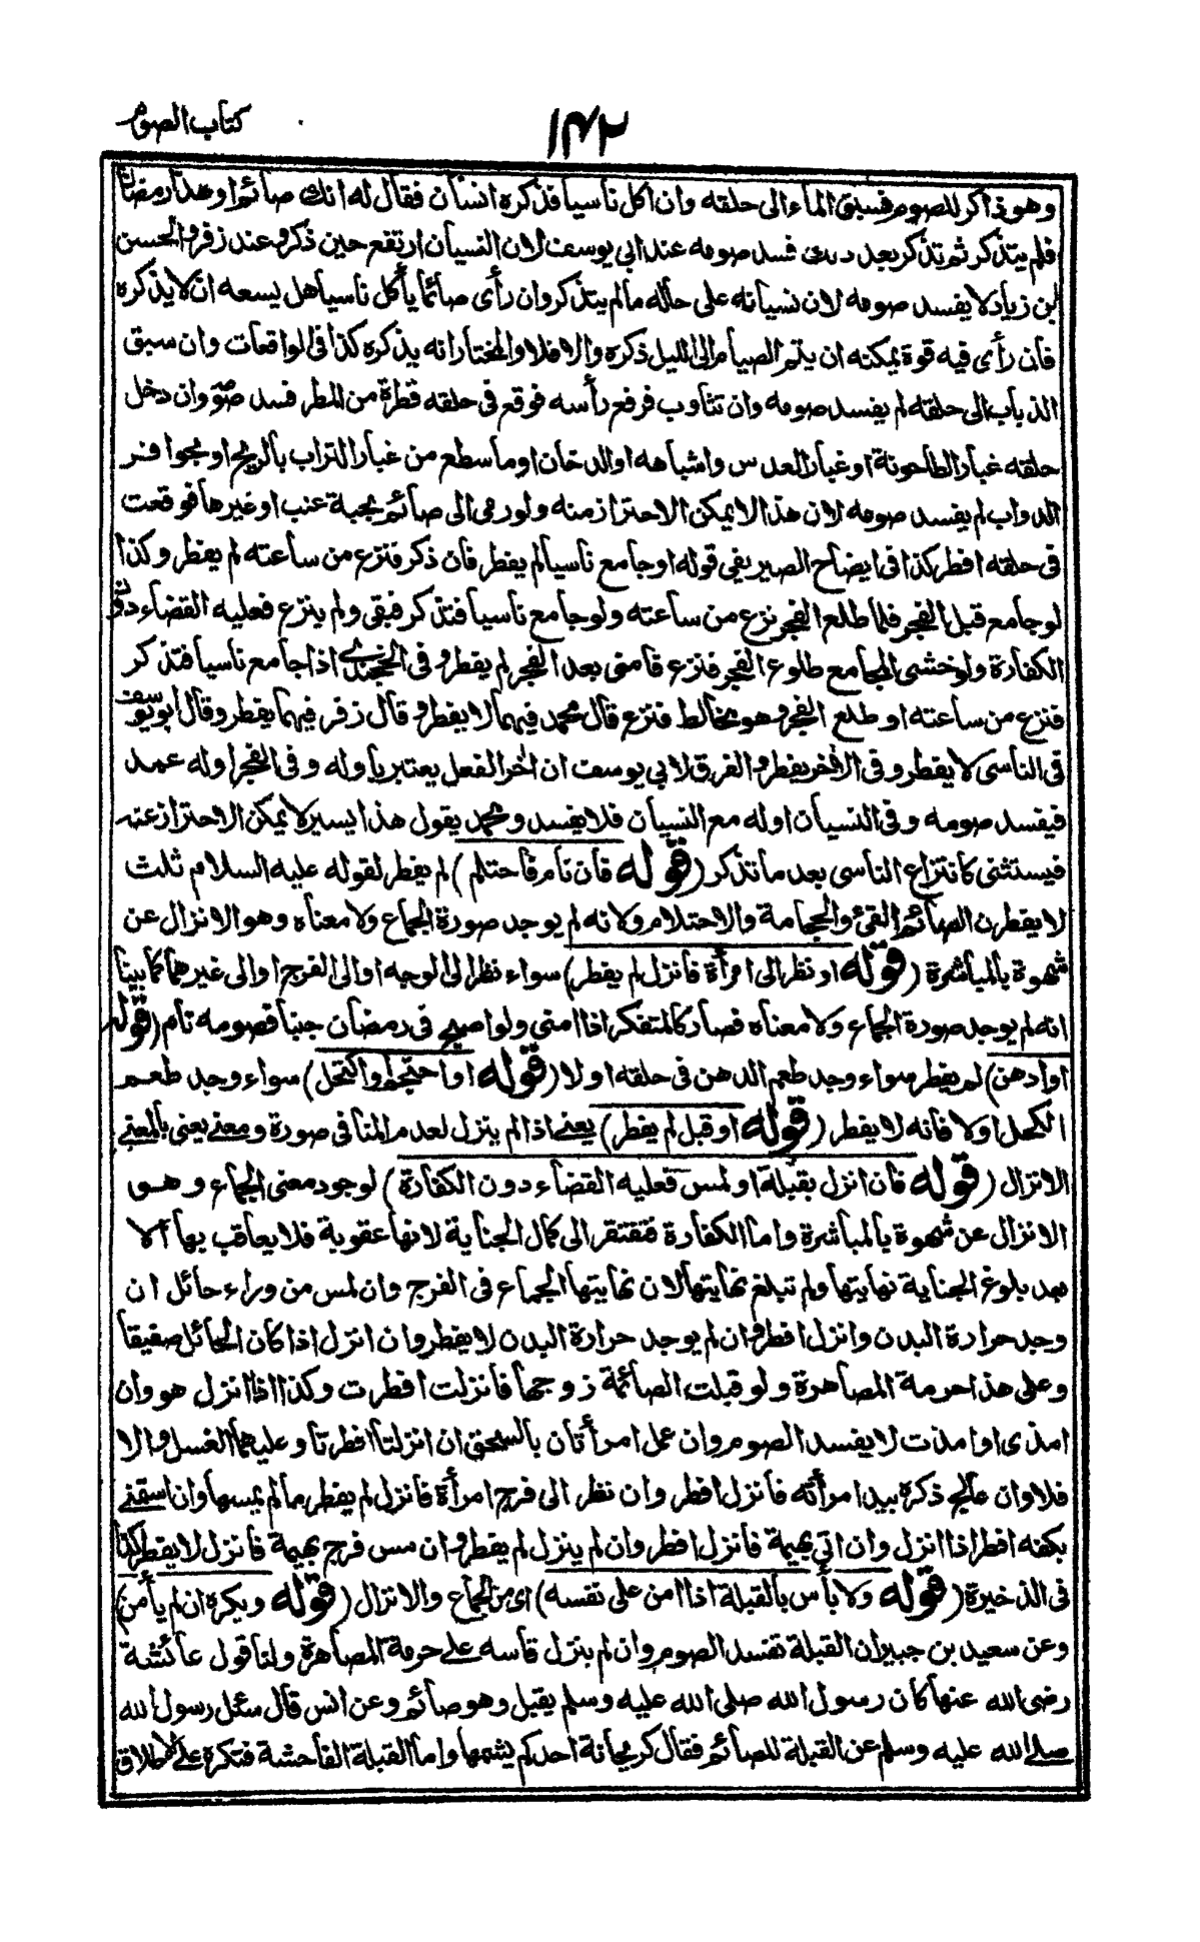 كتاب الصوم
١٤٢
وهو ذاكر للصوم فسبق الماء الى حلقه وان اكل ناسيا فذكره انسان فقال له انك صائم او هذا رمضان
فلم يتذكر ثم تذكر بعد ذلك فسد صومه عند ابي يوسف لان النسيان ارتفع حين ذكر وعند زفر والحسن
ابن زياد لا يفسد صومه لان نسيانه على حاله ما لم يتذكر وان رأى صائما يأكل ناسيا هل يسعه ان لا يذكره
فان رأى فيه قوة يمكنه ان يتم الصيام الى الليل ذكره والا فلا والمختار انه يذكره كذا فى الواقعات وان سبق
الذباب الى حلقه لم يفسد صومه وان تثاوب فرفع رأسه فوقع فى حلقه قطرة من المطر فسد صومه وان دخل
حلقه غبار الطاحونة او غبار العدس واشباهه او الدخان او ما سطع من غبار التراب بالريح او بحوافر
الدواب لم يفسد صومه لان هذا لا يمكن الاحتراز منه ولو رمى الى صائم بحبة عنب او غيرها فوقعت
فى حلقه افطر كذا فى ايضاح الصيرفى قوله او جامع ناسيا لم يفطر فان ذكر فنزع من ساعته لم يفطر وكذا
لو جامع قبل الفجر فلما طلع الفجر نزع من ساعته ولو جامع ناسيا فتذكر فبقى ولم ينزع فعليه القضاء دون
الكفارة ولو خشى المجامع طلوع الفجر فنزع فامنى بعد الفجر لم يفطر وفى الخجندى اذا جامع ناسيا فتذكر
فنزع من ساعته او طلع الفجر وهو مخالط فنزع قال محمد فيهما لا يفطر وقال زفر فيهما يفطر وقال ابو يوسف
فى الناسى لا يفطر وفى الأخر يفطر والفرق لابي يوسف ان اخر الفعل يعتبر باوله وفى الفجر اوله عمد
فيفسد صومه وفى النسيان اوله مع النسيان فلا يفسد ومحمد يقول هذا يسير لا يمكن الاحتراز عنه
فيستثنى كانتزاع الناسى بعد ما تذكر (قوله فان نام فاحتلم) لم يفطر لقوله عليه السلام ثلث
لا يفطرن الصائم القئ والحجامة والاحتلام ولانه لم يوجد صورة الجماع ولا معناه وهو الانزال عن
شهوة بالمباشرة (قوله او نظر الى امرأة فانزل لم يفطر) سواء نظر الى الوجه او الى الفرج او الى غيرهما كما بينا
انه لم يوجد صورة الجماع ولا معناه فصار كالمتفكر اذا امنى ولو اصبح فى رمضان جنبا فصومه تام (قوله
او ادهن) لم يفطر سواء وجد طعم الدهن فى حلقه او لا (قوله او احتجم او اكتحل) سواء وجد طعم
الكحل اولا فانه لا يفطر (قوله او قبل لم يفطر) يعنى اذا لم ينزل لعدم المنافى صورة ومعنى يعنى بالمعنى
الانزال (قوله فان انزل بقبلة او لمس فعليه القضاء دون الكفارة) لوجود معنى الجماع وهو
الانزال عن شهوة بالمباشرة واما الكفارة فتفتقر الى كمال الجناية لانها عقوبة فلا يعاقب بها الا
بعد بلوغ الجناية نهايتها ولم تبلغ نهايتها لان نهايتها الجماع فى الفرج وان لمس من وراء حائل ان
وجد حرارة البدن وانزل افطر وان لم يوجد حرارة البدن لا يفطر وان انزل اذا كان الحائل صفيقا
وعلى هذا حرمة المصاهرة ولو قبلت الصائمة زوجها فانزلت افطرت وكذا اذا انزل هو وان
امذى او امذت لا يفسد الصوم وان عمل امرأتان بالسحق ان انزلتا افطرتا وعليهما الغسل والا
فلا وان عالج ذكره بيد امرأته فانزل افطر وان نظر الى فرج امرأة فانزل لم يفطر ما لم يمسها وان استمنى
بكفه افطر اذا انزل وان اتى بهيمة فانزل افطر وان لم ينزل لم يفطر وان مس فرج بهيمة فانزل لا يفطر كذا
فى الذخيرة (قوله ولا بأس بالقبلة اذا امن على نفسه) اى من الجماع والانزال (قوله ويكره ان لم يأمن)
وعن سعيد بن جبير ان القبلة تفسد الصوم وان لم ينزل قاسه على حرمة المصاهرة ولنا قول عائشة
رضى الله عنها كان رسول الله صلى الله عليه وسلم يقبل وهو صائم وعن انس قال سئل رسول الله
صلى الله عليه وسلم عن القبلة للصائم فقال كريحانة احدكم يشمها واما القبلة الفاحشة فتكره على الاطلاق